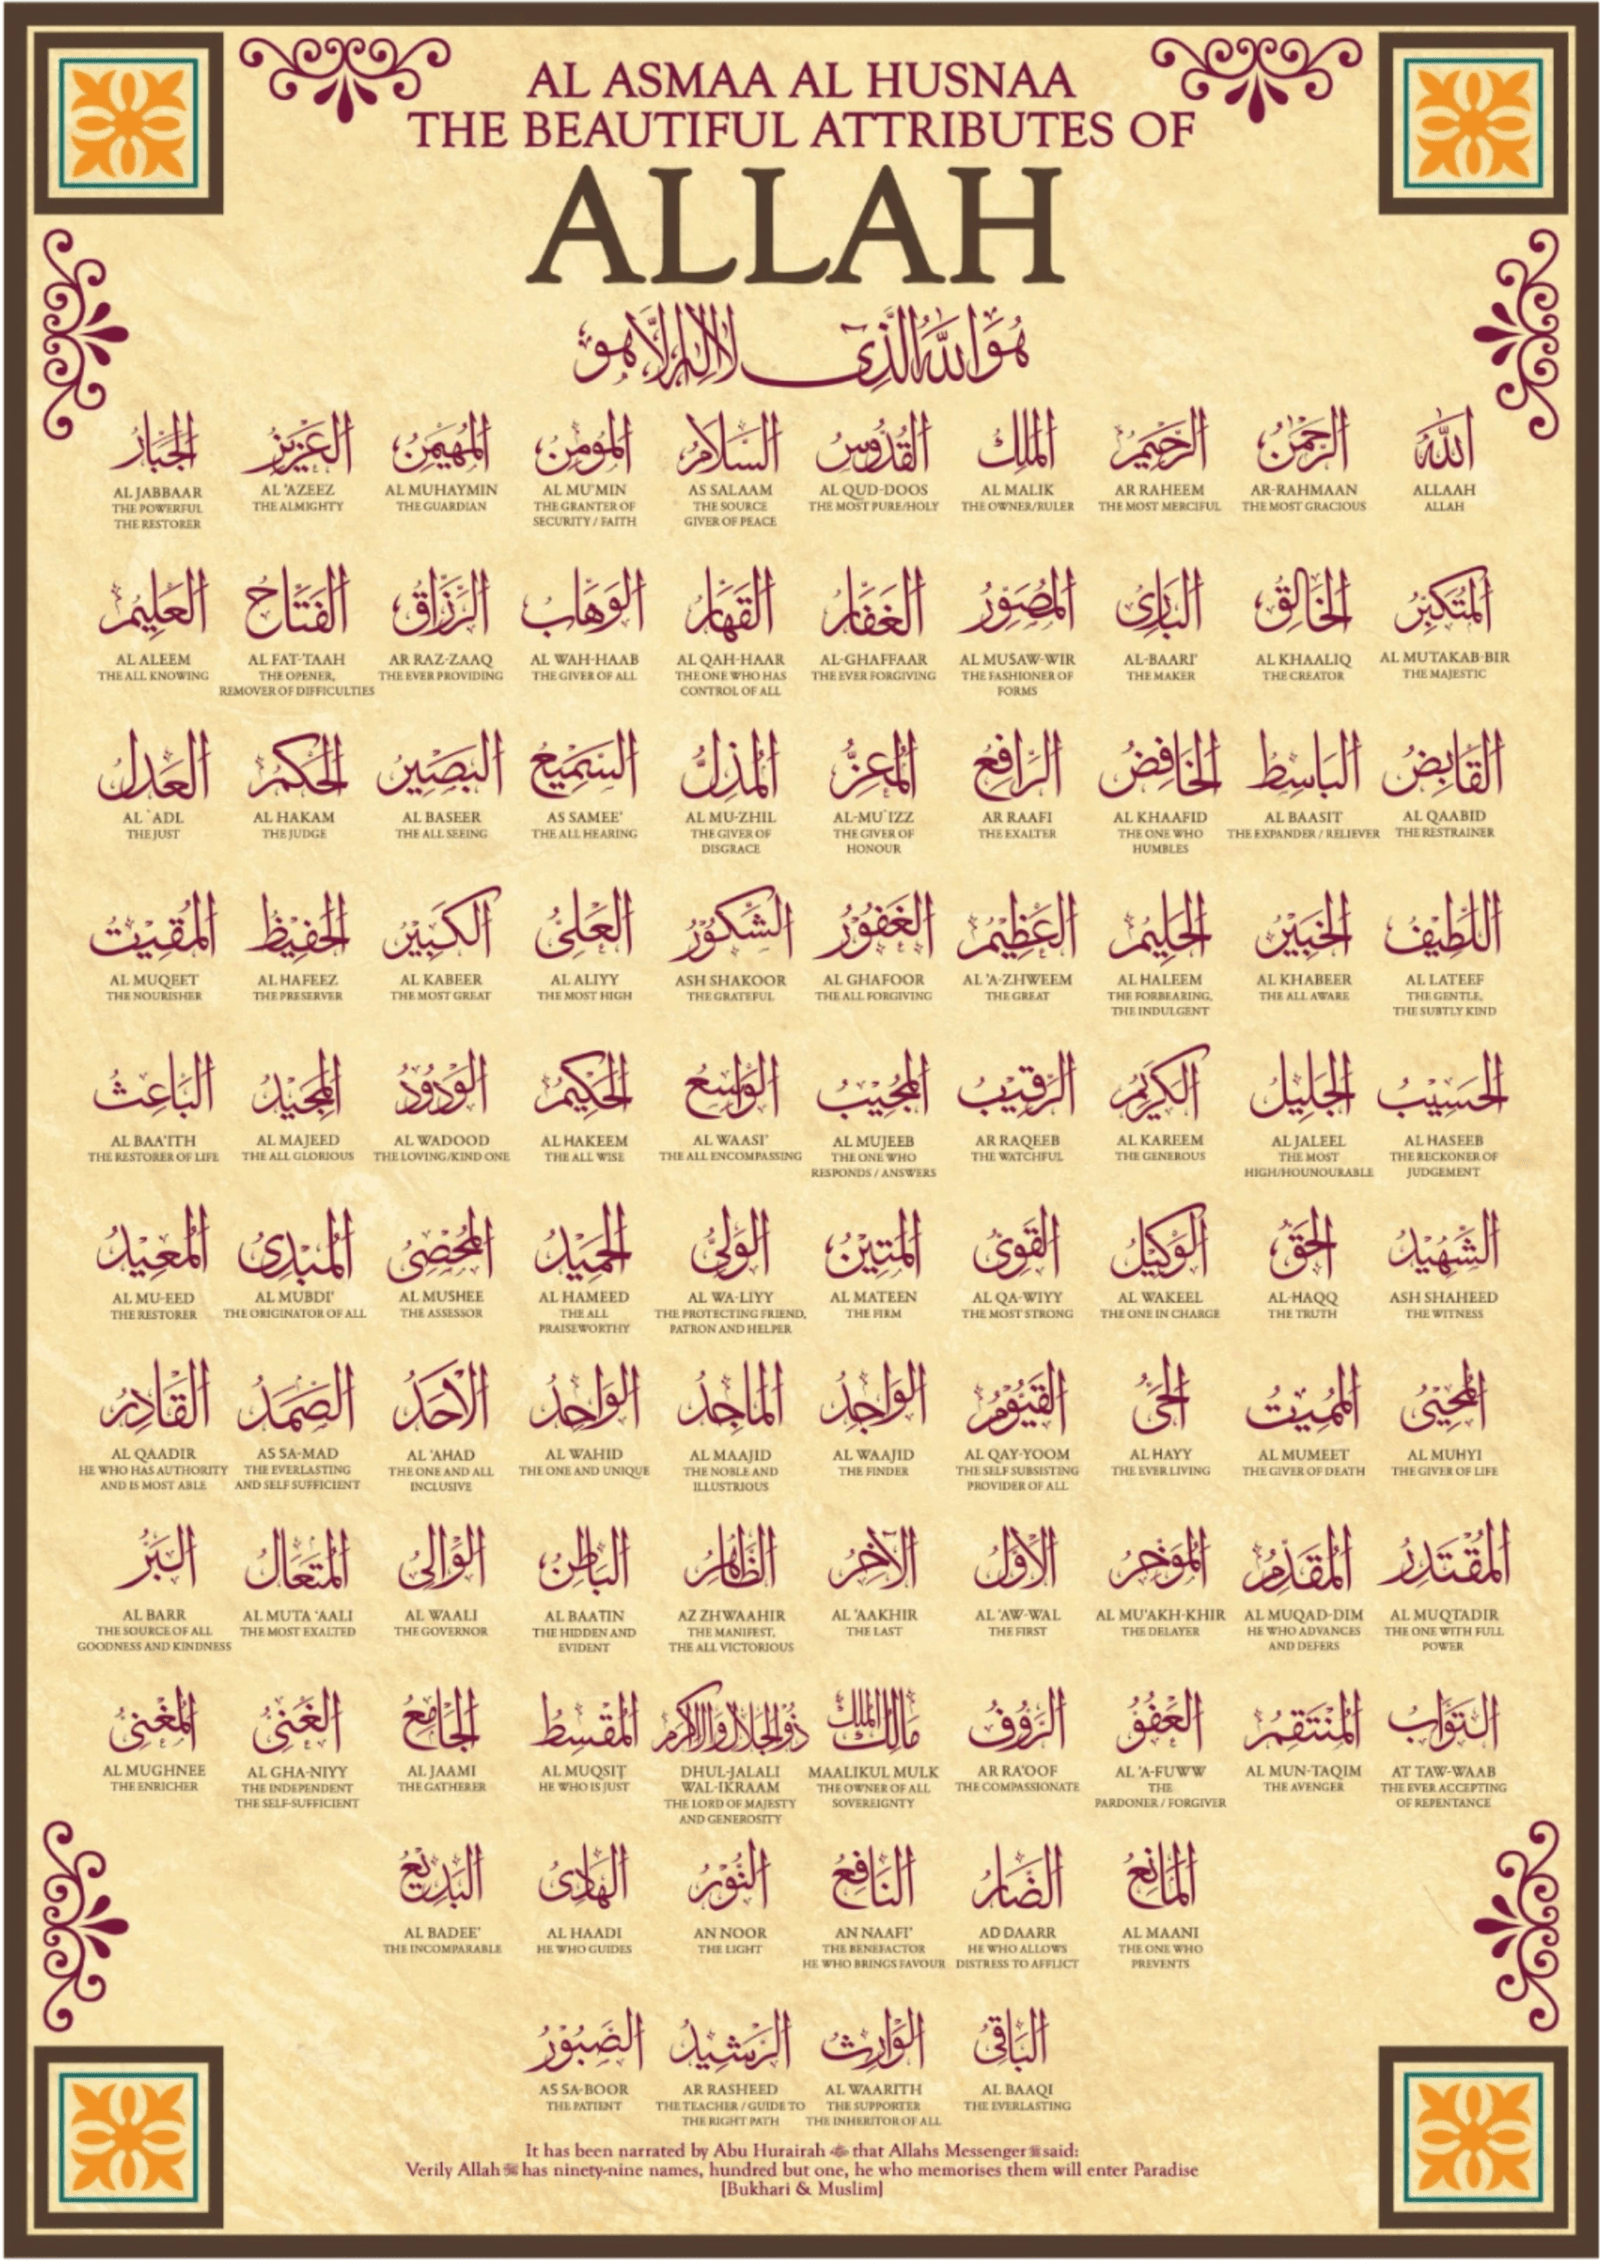 AL ASMAA AL HUSNAA
THE BEAUTIFUL ATTRIBUTES OF
ALLAH
هُوَ اللهُ الَّذِی لَا اِلٰهَ اِلَّا هُوَ
اللهُ الرَّحْمٰنُ الرَّحِیْمُ الْمَلِكُ الْقُدُّوسُ السَّلَامُ الْمُؤْمِنُ الْمُهَیْمِنُ الْعَزِیْزُ الْجَبَّارُ
ALLAAH AR-RAHMAAN AR RAHEEM AL MALIK AL QUD-DOOS AS SALAAM AL MU'MIN AL MUHAYMIN AL 'AZEEZ AL JABBAAR
ALLAH THE MOST GRACIOUS THE MOST MERCIFUL THE OWNER/RULER THE MOST PURE/HOLY THE SOURCE THE GRANTER OF THE GUARDIAN THE ALMIGHTY THE POWERFUL
GIVER OF PEACE SECURITY / FAITH THE RESTORER
الْمُتَكَبِّرُ الْخَالِقُ الْبَارِیُ الْمُصَوِّرُ الْغَفَّارُ الْقَهَّارُ الْوَهَّابُ الرَّزَّاقُ الْفَتَّاحُ الْعَلِیْمُ
AL MUTAKAB-BIR AL KHAALIQ AL-BAARI' AL MUSAW-WIR AL-GHAFFAAR AL QAH-HAAR AL WAH-HAAB AR RAZ-ZAAQ AL FAT-TAAH AL ALEEM
THE MAJESTIC THE CREATOR THE MAKER THE FASHIONER OF THE EVER FORGIVING THE ONE WHO HAS THE GIVER OF ALL THE EVER PROVIDING THE OPENER, THE ALL KNOWING
FORMS CONTROL OF ALL REMOVER OF DIFFICULTIES
الْقَابِضُ الْبَاسِطُ الْخَافِضُ الرَّافِعُ الْمُعِزُّ الْمُذِلُّ السَّمِیْعُ الْبَصِیْرُ الْحَكَمُ الْعَدْلُ
AL QAABID AL BAASIT AL KHAAFID AR RAAFI AL-MU`IZZ AL MU-ZHIL AS SAMEE' AL BASEER AL HAKAM AL `ADL
THE RESTRAINER THE EXPANDER / RELIEVER THE ONE WHO THE EXALTER THE GIVER OF THE GIVER OF THE ALL HEARING THE ALL SEEING THE JUDGE THE JUST
HUMBLES HONOUR DISGRACE
اللَّطِیْفُ الْخَبِیْرُ الْحَلِیْمُ الْعَظِیْمُ الْغَفُوْرُ الشَّكُوْرُ الْعَلِیُّ الْكَبِیْرُ الْحَفِیْظُ الْمُقِیْتُ
AL LATEEF AL KHABEER AL HALEEM AL 'A-ZHWEEM AL GHAFOOR ASH SHAKOOR AL ALIYY AL KABEER AL HAFEEZ AL MUQEET
THE GENTLE, THE ALL AWARE THE FORBEARING, THE GREAT THE ALL FORGIVING THE GRATEFUL THE MOST HIGH THE MOST GREAT THE PRESERVER THE NOURISHER
THE SUBTLY KIND THE INDULGENT
الْحَسِیْبُ الْجَلِیْلُ الْكَرِیْمُ الرَّقِیْبُ الْمُجِیْبُ الْوَاسِعُ الْحَكِیْمُ الْوَدُوْدُ الْمَجِیْدُ الْبَاعِثُ
AL HASEEB AL JALEEL AL KAREEM AR RAQEEB AL MUJEEB AL WAASI' AL HAKEEM AL WADOOD AL MAJEED AL BAA'ITH
THE RECKONER OF THE MOST THE GENEROUS THE WATCHFUL THE ONE WHO THE ALL ENCOMPASSING THE ALL WISE THE LOVING/KIND ONE THE ALL GLORIOUS THE RESTORER OF LIFE
JUDGEMENT HIGH/HOUNOURABLE RESPONDS / ANSWERS
الشَّهِیْدُ الْحَقُّ الْوَكِیْلُ الْقَوِیُّ الْمَتِیْنُ الْوَلِیُّ الْحَمِیْدُ الْمُحْصِیُ الْمُبْدِیُ الْمُعِیْدُ
ASH SHAHEED AL-HAQQ AL WAKEEL AL QA-WIYY AL MATEEN AL WA-LIYY AL HAMEED AL MUSHEE AL MUBDI' AL MU-EED
THE WITNESS THE TRUTH THE ONE IN CHARGE THE MOST STRONG THE FIRM THE PROTECTING FRIEND, THE ALL THE ASSESSOR THE ORIGINATOR OF ALL THE RESTORER
PATRON AND HELPER PRAISEWORTHY
الْمُحْیِیُ الْمُمِیْتُ الْحَیُّ الْقَیُّوْمُ الْوَاجِدُ الْمَاجِدُ الْوَاحِدُ الْاَحَدُ الصَّمَدُ الْقَادِرُ
AL MUHYI AL MUMEET AL HAYY AL QAY-YOOM AL WAAJID AL MAAJID AL WAHID AL 'AHAD AS SA-MAD AL QAADIR
THE GIVER OF LIFE THE GIVER OF DEATH THE EVER LIVING THE SELF SUBSISTING THE FINDER THE NOBLE AND THE ONE AND UNIQUE THE ONE AND ALL THE EVERLASTING HE WHO HAS AUTHORITY
PROVIDER OF ALL ILLUSTRIOUS INCLUSIVE AND SELF SUFFICIENT AND IS MOST ABLE
الْمُقْتَدِرُ الْمُقَدِّمُ الْمُؤَخِّرُ الْاَوَّلُ الْاٰخِرُ الظَّاهِرُ الْبَاطِنُ الْوَالِی الْمُتَعَالُ الْبَرُّ
AL MUQTADIR AL MUQAD-DIM AL MU'AKH-KHIR AL 'AW-WAL AL 'AAKHIR AZ ZHWAAHIR AL BAATIN AL WAALI AL MUTA 'AALI AL BARR
THE ONE WITH FULL HE WHO ADVANCES THE DELAYER THE FIRST THE LAST THE MANIFEST, THE HIDDEN AND THE GOVERNOR THE MOST EXALTED THE SOURCE OF ALL
POWER AND DEFERS THE ALL VICTORIOUS EVIDENT GOODNESS AND KINDNESS
التَّوَّابُ الْمُنْتَقِمُ الْعَفُوُّ الرَّؤُوْفُ مَالِكُ الْمُلْكِ ذُوالْجَلَالِ وَالْاِكْرَامِ الْمُقْسِطُ الْجَامِعُ الْغَنِیُّ الْمُغْنِیُ
AT TAW-WAAB AL MUN-TAQIM AL 'A-FUWW AR RA'OOF MAALIKUL MULK DHUL-JALALI AL MUQSIT AL JAAMI AL GHA-NIYY AL MUGHNEE
THE EVER ACCEPTING THE AVENGER THE THE COMPASSIONATE THE OWNER OF ALL WAL-IKRAAM HE WHO IS JUST THE GATHERER THE INDEPENDENT THE ENRICHER
OF REPENTANCE PARDONER / FORGIVER SOVEREIGNTY THE LORD OF MAJESTY THE SELF-SUFFICIENT
AND GENEROSITY
الْمَانِعُ الضَّارُ النَّافِعُ النُّوْرُ الْهَادِی الْبَدِیْعُ
AL MAANI AD DAARR AN NAAFI' AN NOOR AL HAADI AL BADEE'
THE ONE WHO HE WHO ALLOWS THE BENEFACTOR THE LIGHT HE WHO GUIDES THE INCOMPARABLE
PREVENTS DISTRESS TO AFFLICT HE WHO BRINGS FAVOUR
الْبَاقِی الْوَارِثُ الرَّشِیْدُ الصَّبُوْرُ
AL BAAQI AL WAARITH AR RASHEED AS SA-BOOR
THE EVERLASTING THE SUPPORTER THE TEACHER / GUIDE TO THE PATIENT
THE INHERITOR OF ALL THE RIGHT PATH
It has been narrated by Abu Hurairah that Allahs Messenger ﷺ said:
Verily Allah has ninety-nine names, hundred but one, he who memorises them will enter Paradise
[Bukhari & Muslim]